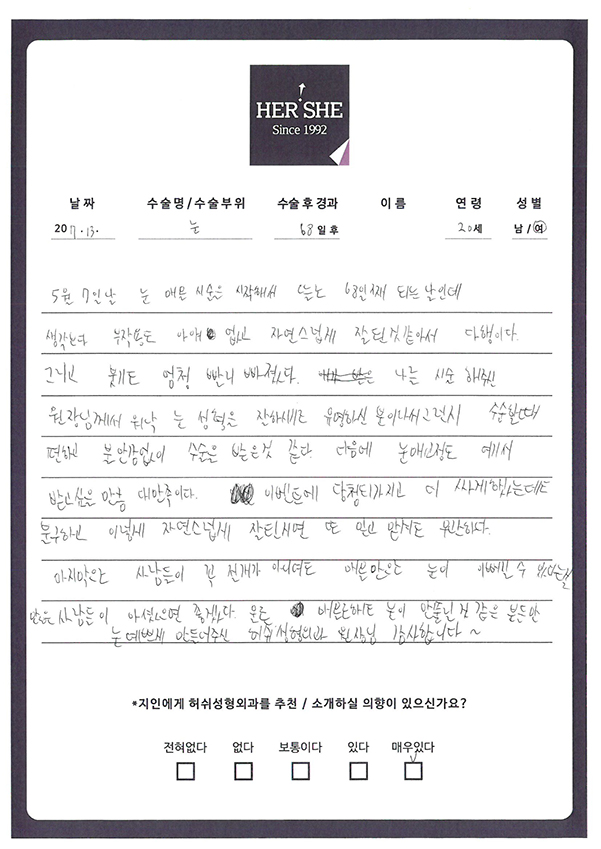 HER SHE
Since 1992
날짜 수술명/수술부위 수술 후 경과 이름 연령 성별
2017.13. 눈 68일 후 20세 남/여
5월 7일날 눈 매몬 시술을 시작해서 오늘로 68일째 되는 날인데
생각보다 부작용도 아예 없고 자연스럽게 잘된것같아서 다행이다.
그리고 붓기도 엄청 빨리 빠졌다. 나는 시술 해주신
원장님께서 워낙 눈 성형을 잘하시기로 유명하신 분이라서그런지 수술할때
편하고 불안감없이 수술을 받은것 같다. 다음에 눈매교정도 여기서
받고싶을 만큼 대만족이다. 이벤트에 당첨되가지고 더 싸게했는데도
불구하고 이렇게 자연스럽게 잘된거면 또 믿고 맡겨도 무난하다.
마지막으로 사람들이 꼭 절개가 아니여도 매몰만으로 눈이 이뻐질 수 있다는걸
많은 사람들이 아셨으면 좋겠다. 매몰만해도 눈이 안풀릴것 같은 분들만
눈 예쁘게 만들어주신 허쉬성형외과 원장님 감사합니다~
*지인에게 허쉬성형외과를 추천 / 소개하실 의향이 있으신가요?
전혀없다 없다 보통이다 있다 매우있다